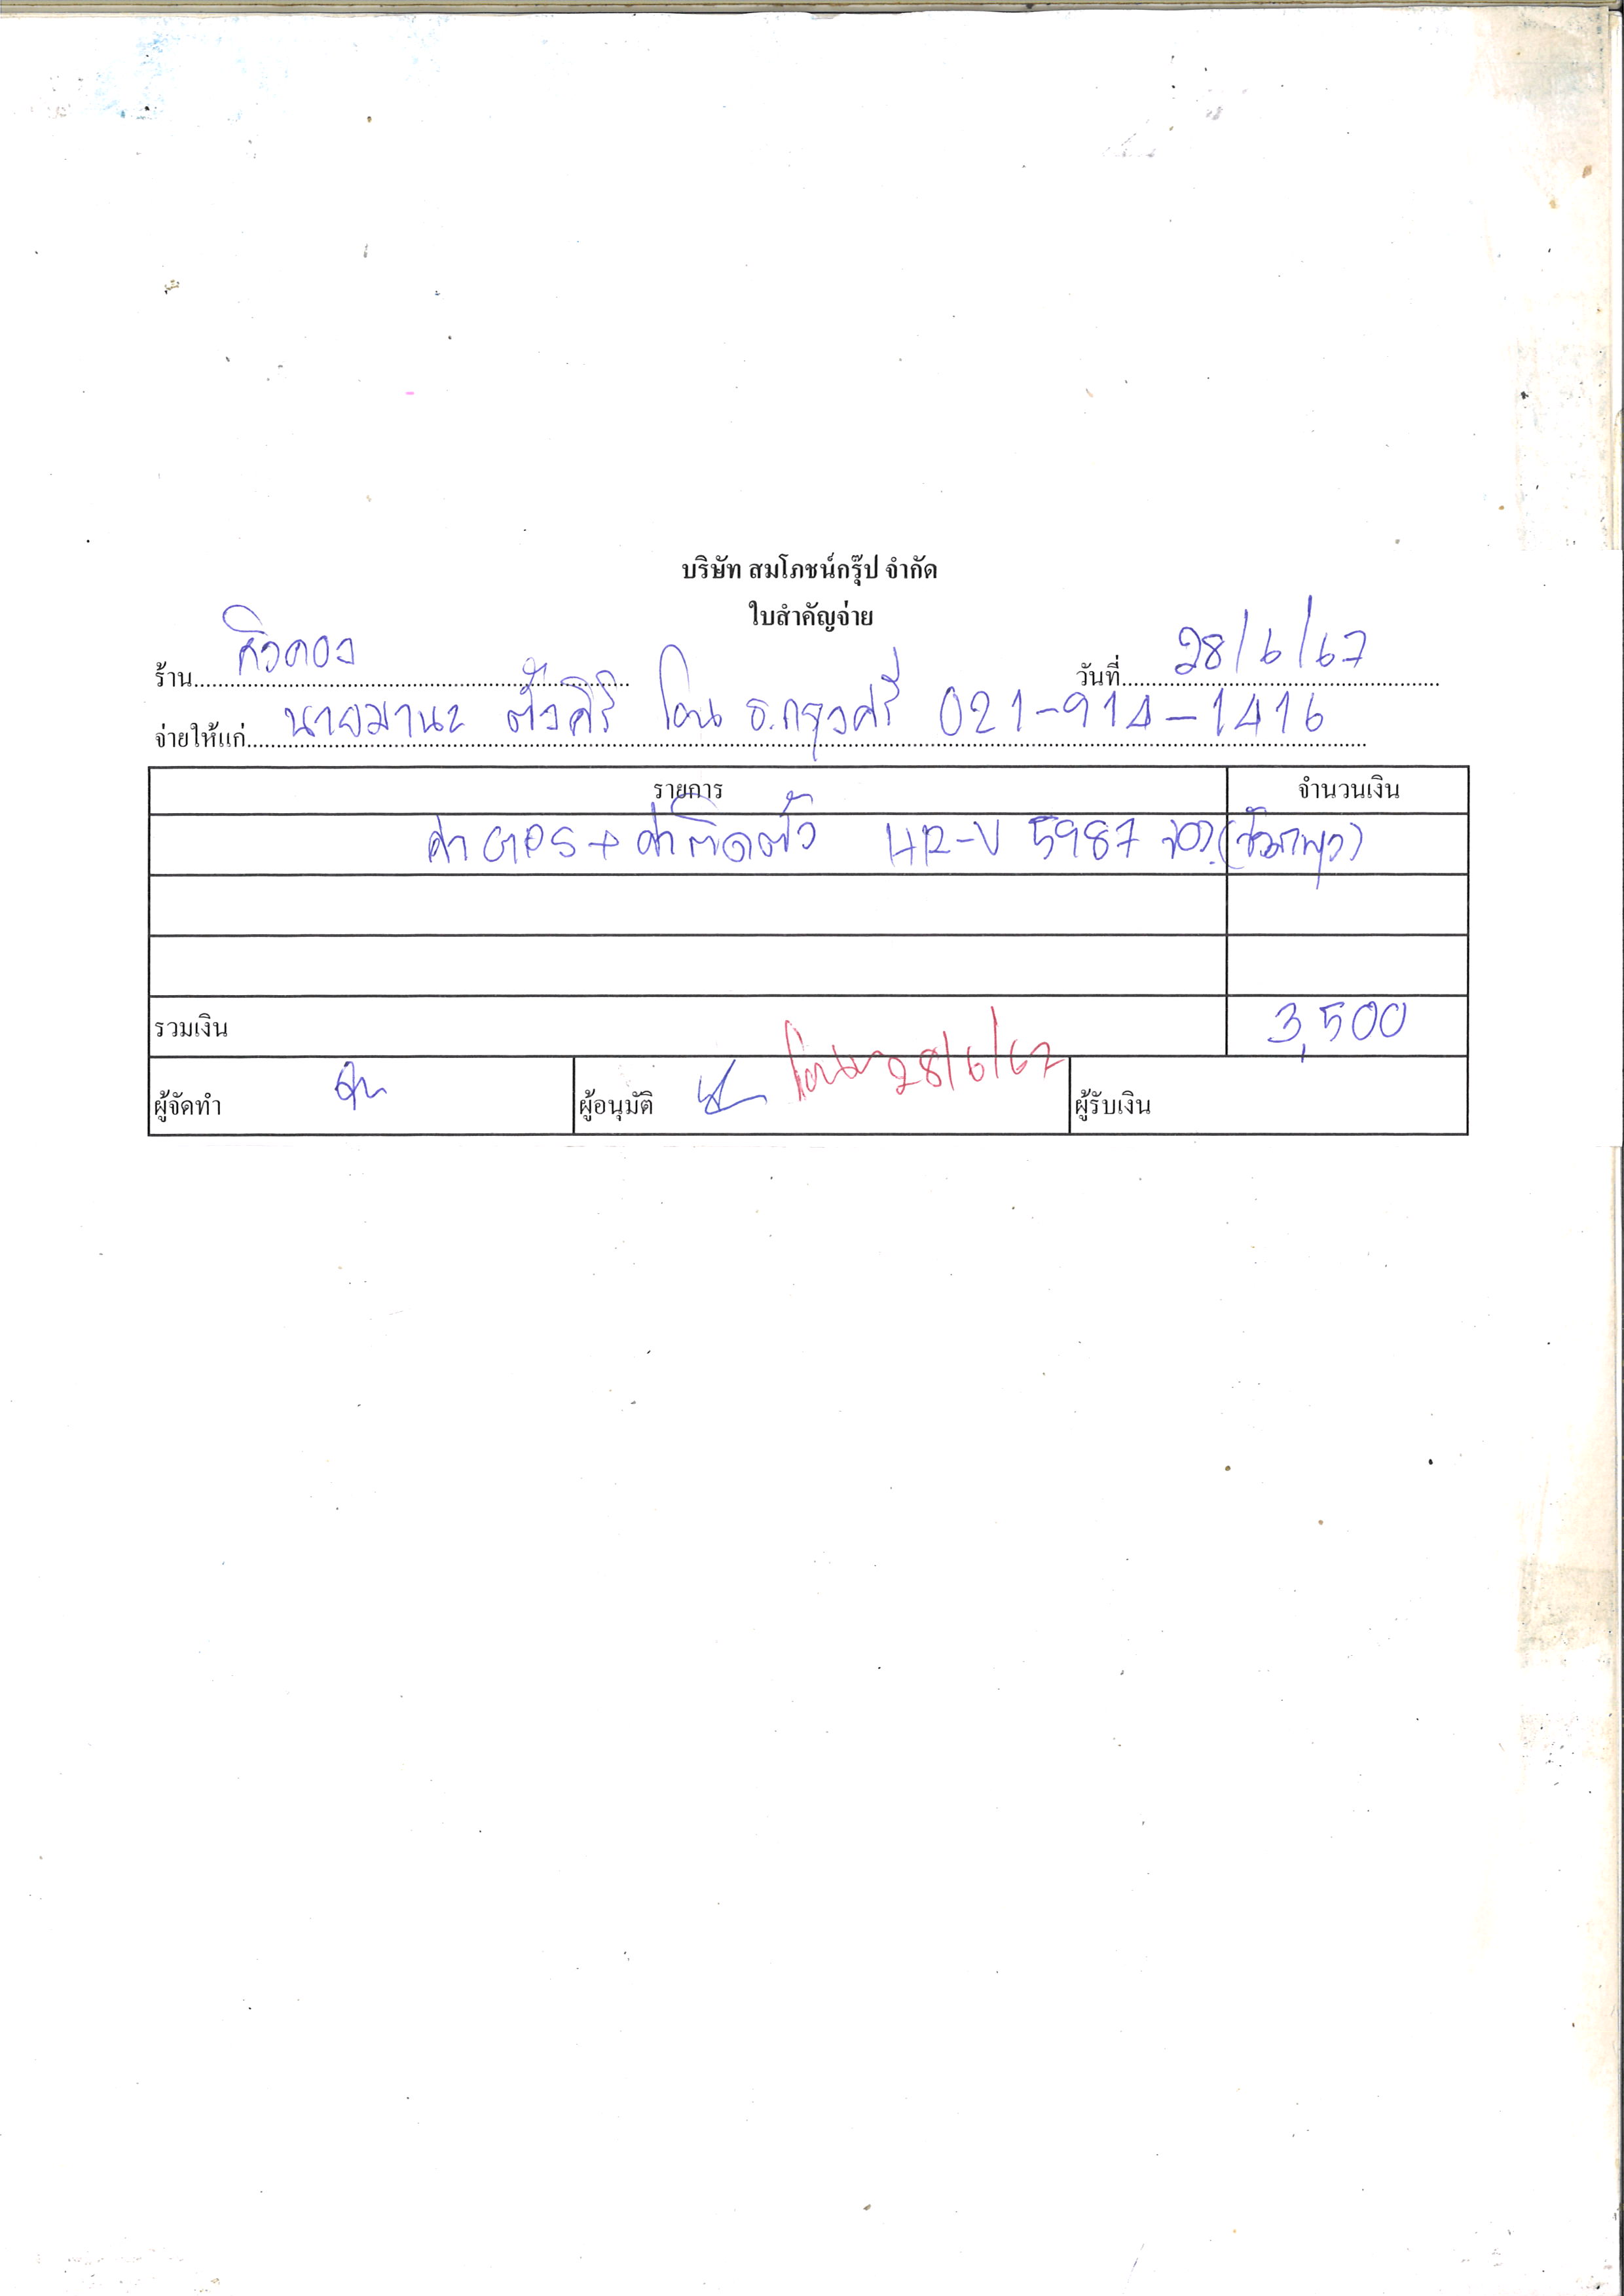 บริษัท สมโภชน์กรุ๊ป จำกัด
ใบสำคัญจ่าย
ร้าน คิวคอง วันที่ 28/6/67
จ่ายให้แก่ นายมานะ ตั้งศิริ โอน ธ.กรุงศรี 021-914-1416
รายการ จำนวนเงิน
ค่า GPS + ค่าติดตั้ง HR-V 5987
รวมเงิน 3,500
ผู้จัดทำ ผู้อนุมัติ โอนแล้ว 28/6/67 ผู้รับเงิน